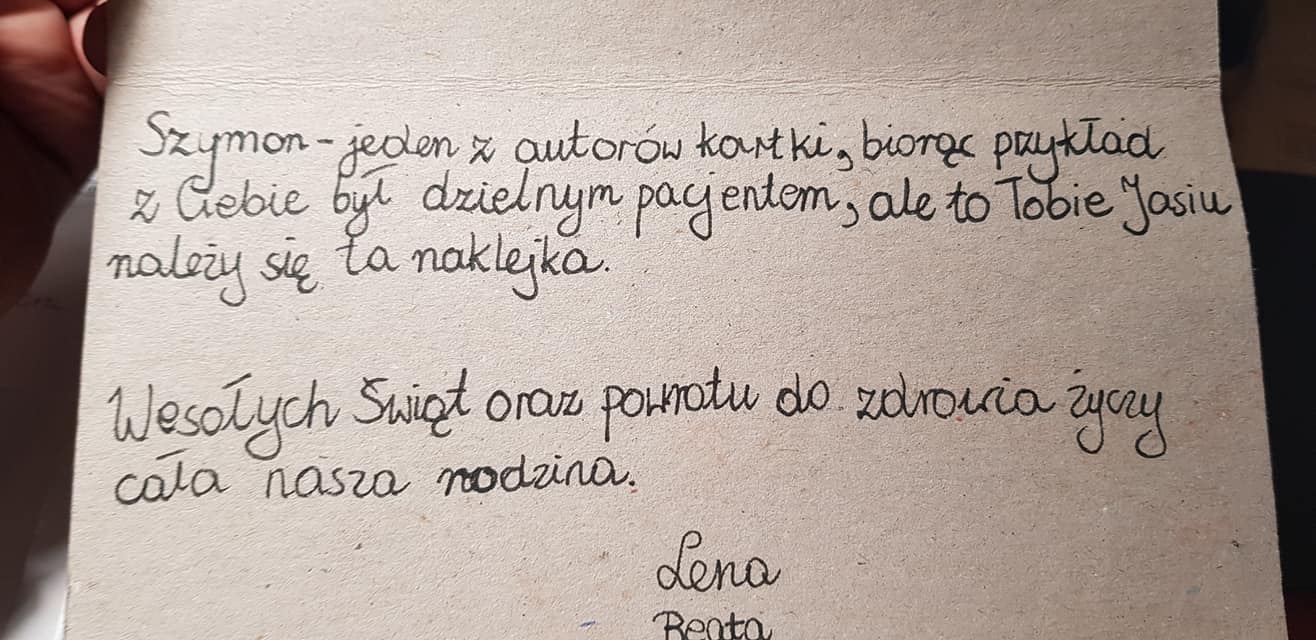 Szymon - jeden z autorów kartki, biorąc przykład
z Ciebie był dzielnym pacjentem, ale to Tobie Jasiu
należy się ta naklejka.
Wesołych Świąt oraz powrotu do zdrowia życzy
cała nasza rodzina.
Lena
Beata